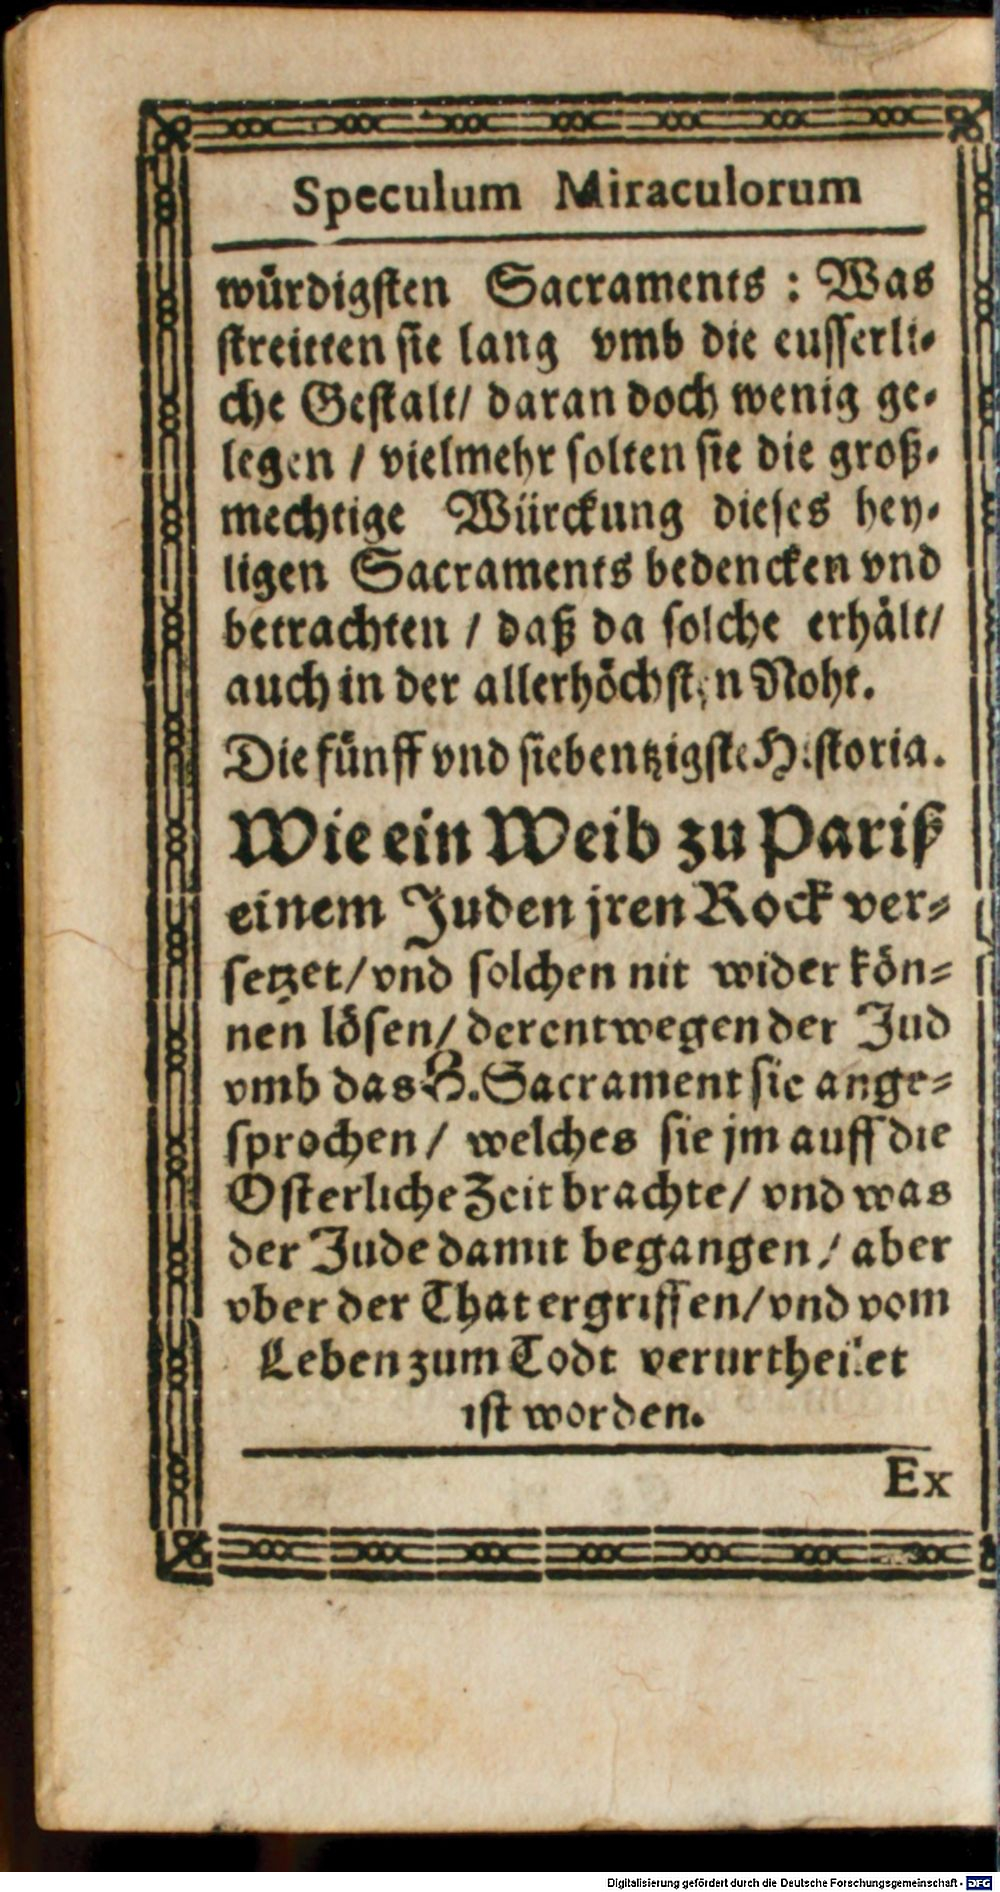 Speculum Miraculorum
würdigsten Sacraments : Was
streitten sie lang vmb die eusserli-
che Gestalt/ daran doch wenig ge-
legen / vielmehr solten sie die groß-
mechtige Würckung dieses hey-
ligen Sacraments bedencken vnd
betrachten / daß da solche erhält/
auch in der allerhöchsten Noht.
Die fünff vnd siebentzigste Historia.
Wie ein Weib zu Pariß
einem Juden jren Rock ver-
setzet/ vnd solchen nit wider kön-
nen lösen/ derentwegen der Jud
vmb das H. Sacrament sie ange-
sprochen / welches sie jm auff die
Osterliche Zeit brachte/ vnd was
der Jude damit begangen / aber
vber der That ergriffen/ vnd vom
Leben zum Todt verurtheilet
ist worden.
Ex
Digitalisierung gefördert durch die Deutsche Forschungsgemeinschaft - DFG